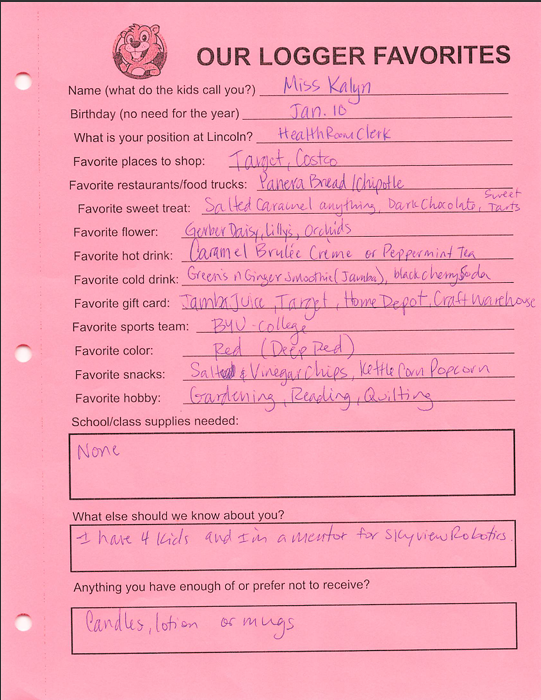 OUR LOGGER FAVORITES
Name (what do the kids call you?) Miss Kalyn
Birthday (no need for the year) Jan. 10
What is your position at Lincoln? Health Room Clerk
Favorite places to shop: Target, Costco
Favorite restaurants/food trucks: Panera Bread / Chipotle
Favorite sweet treat: Salted Caramel anything, Dark Chocolate, Sweet Tarts
Favorite flower: Gerber Daisy, Lillys, Orchids
Favorite hot drink: Caramel Brulée Créme or Peppermint Tea
Favorite cold drink: Greens n Ginger Smoothie (Jamba), black cherry Soda
Favorite gift card: Jamba Juice, Target, Home Depot, Craft Warehouse
Favorite sports team: BYU - College
Favorite color: Red (Deep Red)
Favorite snacks: Salt & Vinegar Chips, Kettle Corn Popcorn
Favorite hobby: Gardening, Reading, Quilting
School/class supplies needed:
None
What else should we know about you?
I have 4 kids and I'm a mentor for Skyview Robotics.
Anything you have enough of or prefer not to receive?
Candles, lotion or mugs